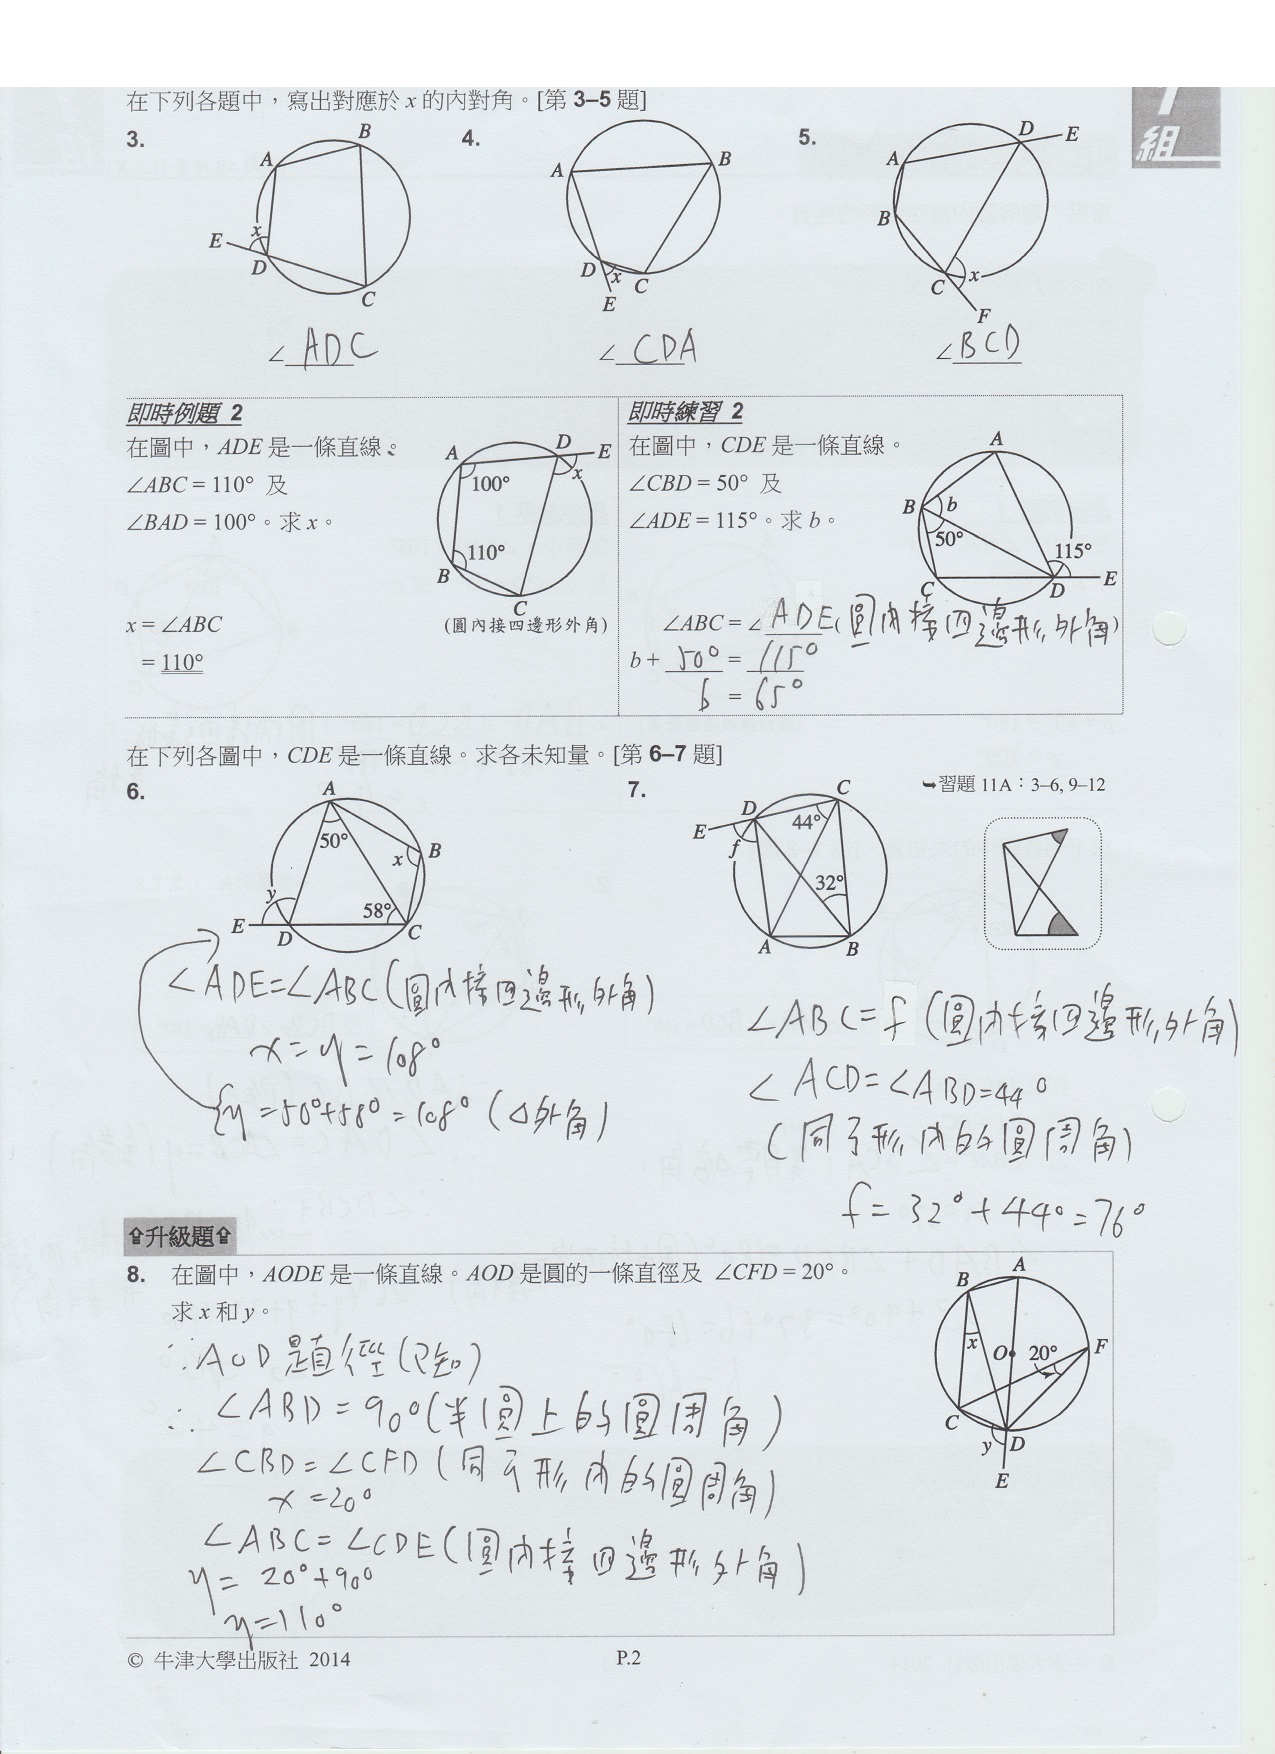 在下列各題中，寫出對應於 x 的內對角。[第 3–5 題]
1
組
3.
4.
5.
A
B
C
D
E
x
A
B
C
D
E
x
A
B
C
D
E
F
x
∠ADC
∠CDA
∠BCD
即時例題 2
在圖中，ADE 是一條直線。
∠ABC = 110° 及
∠BAD = 100°。求 x。
A
B
C
D
E
100°
110°
x
x = ∠ABC
(圓內接四邊形外角)
= 110°
即時練習 2
在圖中，CDE 是一條直線。
∠CBD = 50° 及
∠ADE = 115°。求 b。
A
B
C
D
E
b
50°
115°
∠ABC = ∠ADE(圓內接四邊形外角)
b + 50° = 115°
b = 65°
在下列各圖中，CDE 是一條直線。求各未知量。[第 6–7 題]
6.
7.
➥習題 11A：3–6, 9–12
A
B
C
D
E
50°
x
y
58°
C
D
E
A
B
44°
f
32°
∠ADE=∠ABC(圓內接四邊形外角)
x=y=108°
{y=50°+58°=108° (△外角)
∠ABC=f(圓內接四邊形外角)
∠ACD=∠ABD=44°
(同弓形內的圓周角)
f=32°+44°=76°
⇧升級題⇧
8. 在圖中，AODE 是一條直線。AOD 是圓的一條直徑及 ∠CFD = 20°。
求 x 和 y。
A
B
C
D
E
F
O
x
y
20°
∵AOD是直徑(已知)
∴ ∠ABD=90°(半圓上的圓周角)
∠CBD=∠CFD(同弓形內的圓周角)
x=20°
∠ABC=∠CDE(圓內接四邊形外角)
y= 20°+90°
y=110°
© 牛津大學出版社 2014
P.2